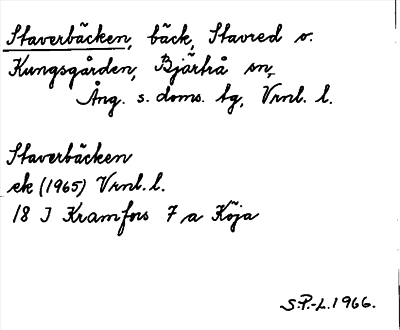 Staverbäcken, bäck, Stavred o.
Kungsgården, Bjärtrå sn,
Ång. s. doms. tg, Vrnl. l.
Staverbäcken
ek (1965) Vrnl. l.
18 I Kramfors 7 a Köja
S.P.-L. 1966.